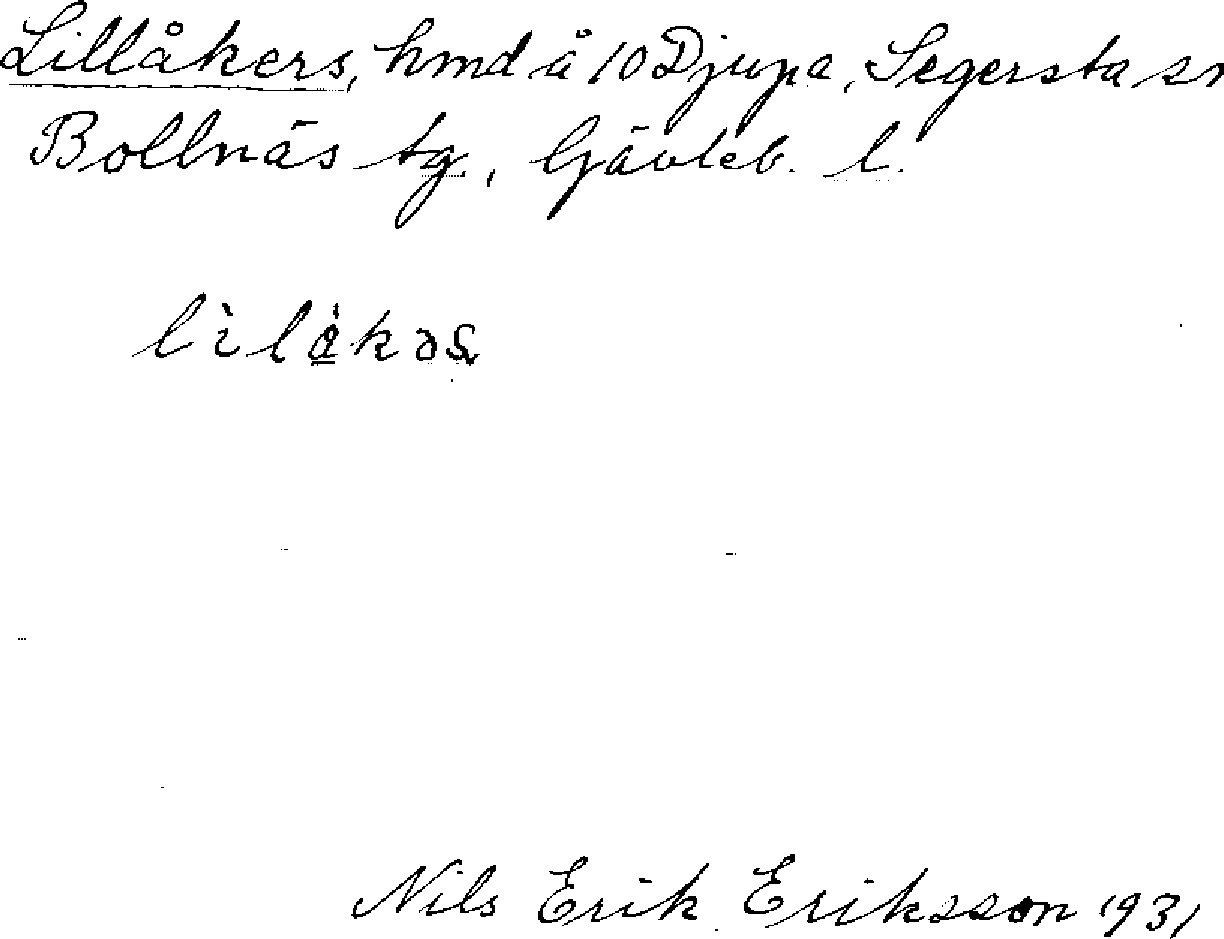 Lillåkers, hmd å 10 Djupa, Segersta sn
Bollnäs tg, Gävleb. l.
lìlåkəs
Nils Erik Eriksson 1931